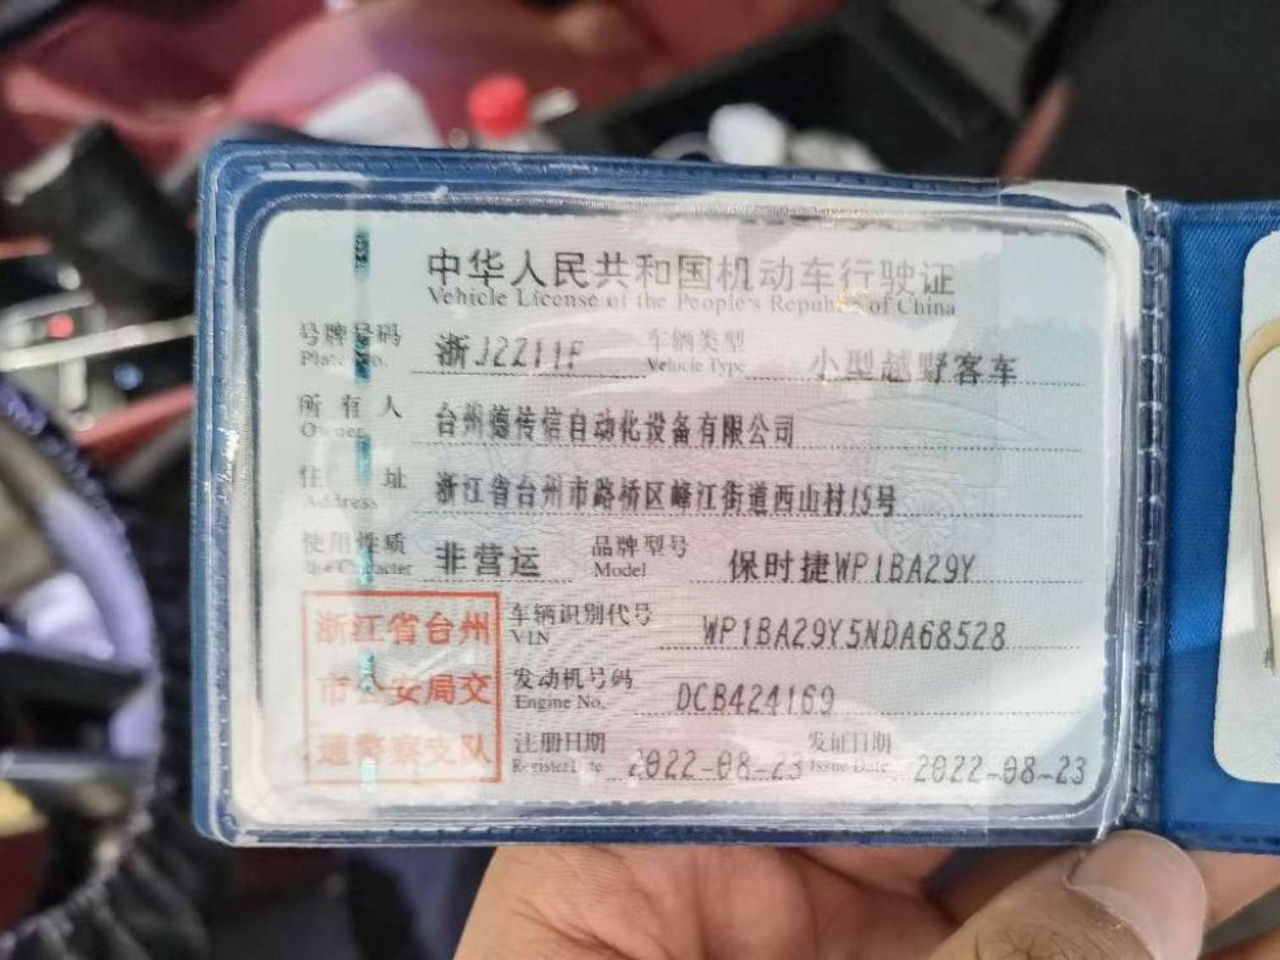 中华人民共和国机动车行驶证
Vehicle License of the People's Republic of China
号牌号码 浙J2Z11F 车辆类型 小型越野客车
Plate No. Vehicle Type
所有人 台州德传信自动化设备有限公司
Owner
住址 浙江省台州市路桥区峰江街道西山村15号
Address
使用性质 非营运 品牌型号 保时捷WP1BA29Y
Use Character Model
浙江省台州 车辆识别代号 WP1BA29Y5NDA68528
VIN
市公安局交 发动机号码 DCB424169
Engine No.
通警察支队 注册日期 2022-08-23 发证日期 2022-08-23
Register Date Issue Date